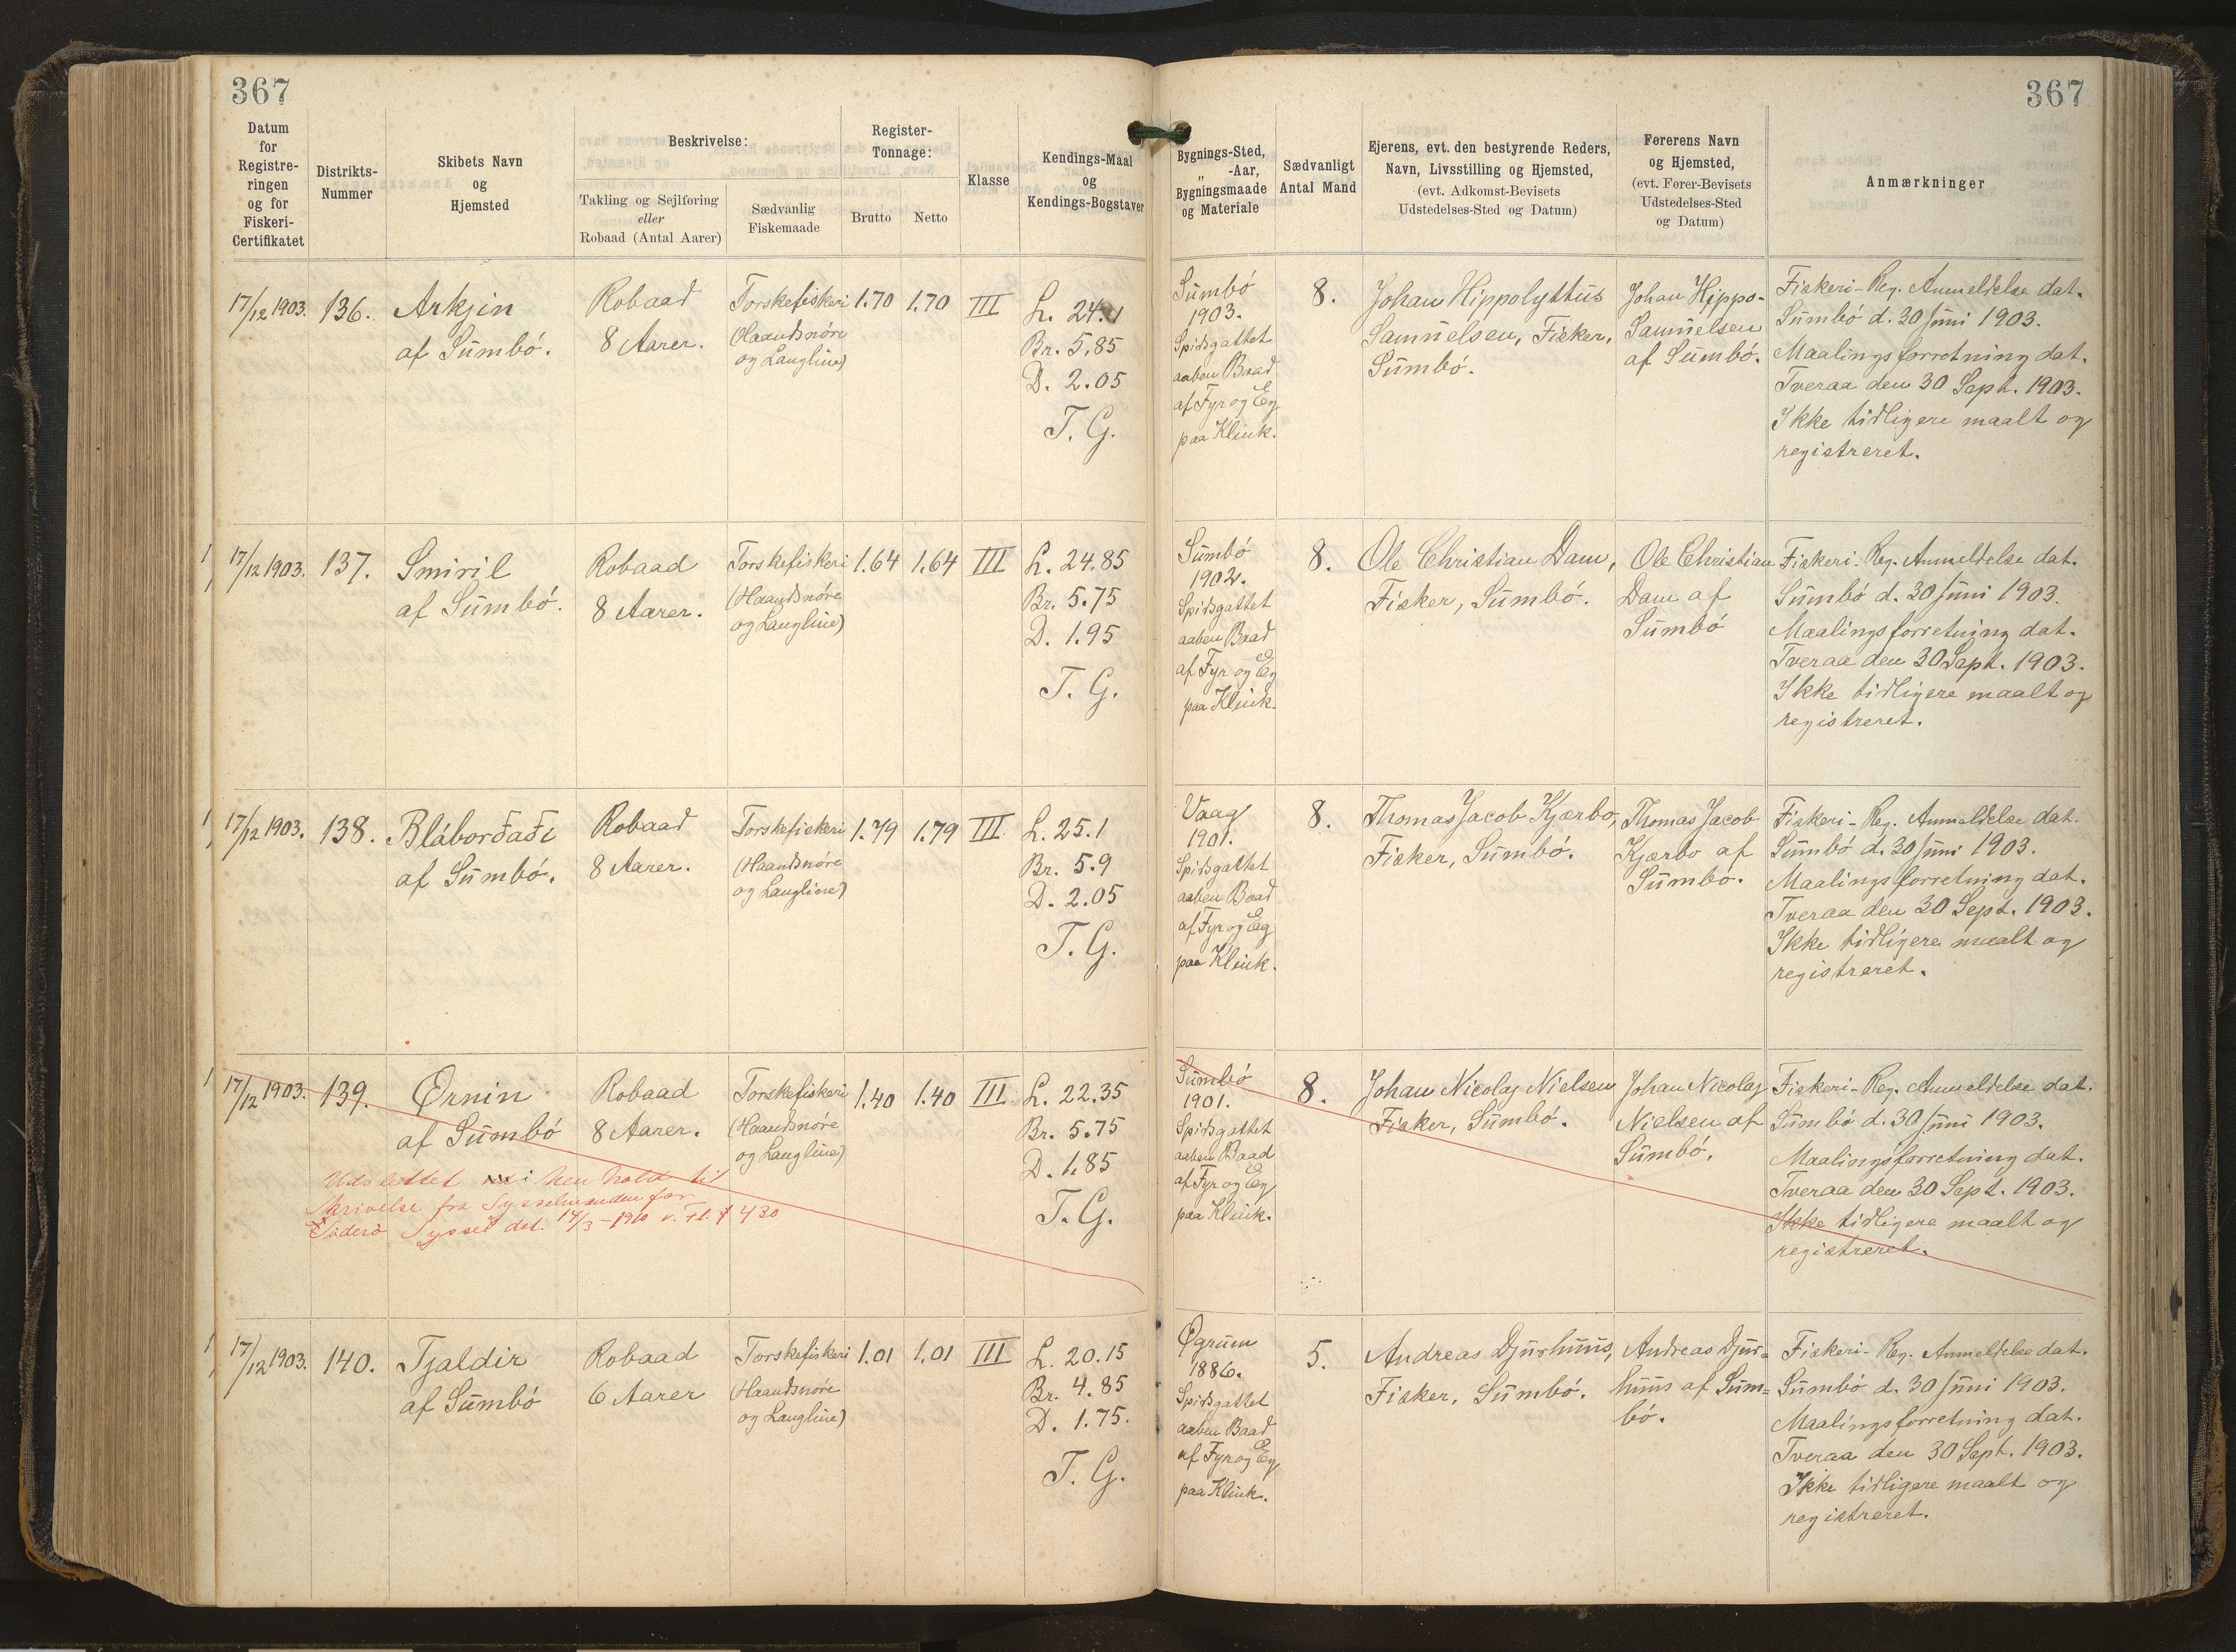 367
367
Datum
for
Registre-
ringen
og for
Fiskeri-
Certifikatet
Distrikts-
Nummer
Skibets Navn
og
Hjemsted
Beskrivelse:
Takling og Sejlføring
eller
Robaad (Antal Aarer)
Sædvanlig
Fiskemaade
Register-
Tonnage:
Brutto
Netto
Klasse
Kendings-Maal
og
Kendings-Bogstaver
Bygnings-Sted,
„ -Aar,
Bygningsmaade
og Materiale
Sædvanligt
Antal Mand
Ejerens, evt. den bestyrende Reders,
Navn, Livsstilling og Hjemsted,
(evt. Adkomst-Bevisets
Udstedelses-Sted og Datum)
Førerens Navn
og Hjemsted,
(evt. Fører-Bevisets
Udstedelses-Sted
og Datum)
Anmærkninger
17/12 1903.
136.
Arkjin
af Sumbó.
Robaad
8 Aarer.
Torskefiskeri
(Haandsnøre
og Langline)
1.70
1.70
III
L. 24.1
Br. 5.85
D. 2.05
T. G.
Sumbó
1903.
Spidsgattet
aaben Baad
af Fyr og Eg
paa Klink.
8.
Johan Hippolyttus
Samuelsen, Fisker,
Sumbó.
Johan Hippo-
Samuelsen
af Sumbó.
Fiskeri-Reg. Anmeldelse dat.
Sumbó d. 30 Juni 1903.
Maalingsforretning dat.
Tveraa den 30 Sept. 1903.
Ikke tidligere maalt og
registreret.
17/12 1903.
137.
Smiril
af Sumbó.
Robaad
8 Aarer.
Torskefiskeri
(Haandsnøre
og Langline)
1.64
1.64
III
L. 24.85
Br. 5.75
D. 1.95
T. G.
Sumbó
1902.
Spidsgattet
aaben Baad
af Fyr og Eg
paa Klink.
8.
Ole Christian Dam,
Fisker, Sumbó.
Ole Christian
Dam af
Sumbó
Fiskeri-Reg. Anmeldelse dat.
Sumbó d. 30 Juni 1903.
Maalingsforretning dat.
Tveraa den 30 Sept. 1903.
Ikke tidligere maalt og
registreret.
17/12 1903.
138.
Bláborðaði
af Sumbó.
Robaad
8 Aarer.
Torskefiskeri
(Haandsnøre
og Langline)
1.79
1.79
III
L. 25.1
Br. 5.9
D. 2.05
T. G.
Vaag
1901.
Spidsgattet
aaben Baad
af Fyr og Eg
paa Klink.
8.
Thomas Jacob Kjærbo,
Fisker, Sumbó.
Thomas Jacob
Kjærbo af
Sumbó.
Fiskeri-Reg. Anmeldelse dat.
Sumbó d. 30 Juni 1903.
Maalingsforretning dat.
Tveraa den 30 Sept. 1903.
Ikke tidligere maalt og
registreret.
17/12 1903.
139.
Ørnin
af Sumbó
Robaad
8 Aarer.
Torskefiskeri
(Haandsnøre
og Langline)
1.40
1.40
III
L. 22.35
Br. 5.75
D. 1.85
T. G.
Udslettet i hen hold til
Skrivelse fra Sysselmanden for
Süderø Syssel dat. 14/3-1910 v. Fl. f 430
Sumbó
1901.
Spidsgattet
aaben Baad
af Fyr og Eg
paa Klink.
8.
Johan Nicolaj Nielsen
Fisker, Sumbó.
Johan Nicolaj
Nielsen af
Sumbó.
Fiskeri-Reg. Anmeldelse dat.
Sumbó d. 30 Juni 1903.
Maalingsforretning dat.
Tveraa den 30 Sept. 1903.
Ikke tidligere maalt og
registreret.
17/12 1903.
140.
Tjaldir
af Sumbó
Robaad
6 Aarer
Torskefiskeri
(Haandsnøre
og Langline)
1.01
1.01
III
L. 20.15
Br. 4.85
D. 1.75.
T. G.
Øgrum
1886.
Spidsgattet
aaben Baad
af Fyr og Eg
paa Klink.
5.
Andreas Djurhuus,
Fisker, Sumbó.
Andreas Djur=
huus af Sum=
bó.
Fiskeri-Reg. Anmeldelse dat.
Sumbó d. 30 Juni 1903.
Maalingsforretning dat.
Tveraa den 30 Sept. 1903.
Ikke tidligere maalt og
registreret.